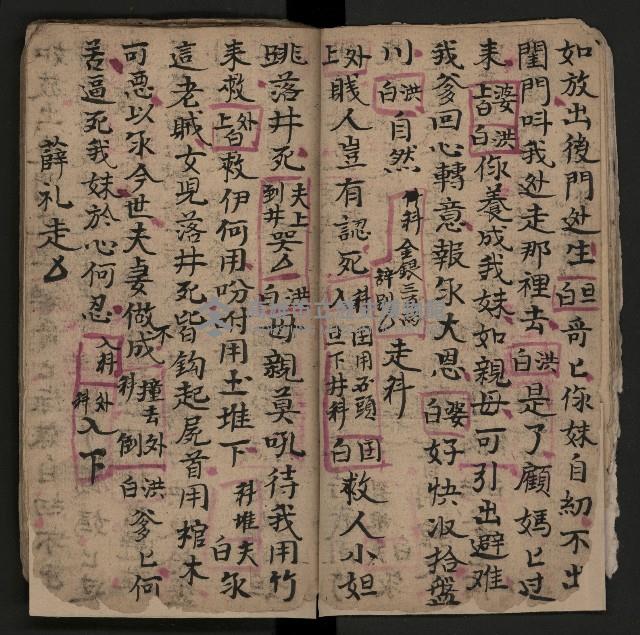 如放出後門处生旦白哥匕你妹自幼不出
閨門呌我处走那裡去洪白是了顧媽匕过
来婆上白洪白你養成我妹如親母可引出避难
我爹回心轉意報汆大恩婆白好快収拾盤
川洪白自然科金銀三百両辞別介走科
外上賎人豈有認死科囯用石頭入旦下井科囯白救人小姐
跳落井死夫上到井哭介洪白母親莫吼待我用竹
来救外上白救伊何用吩付用土堆下科堆夫白汆
這老贼女児落井死皆鈎起屍首用棺木
可悪以汆今世夫妻做不成科撞去外倒洪白爹匕何
苦逼死我妹於心何忍入科外科入下
薛礼走介